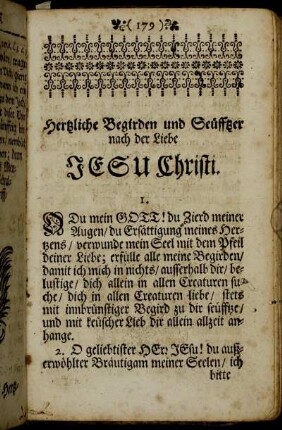 (179)
Hertzliche Begirden und Seüfftzer
nach der Liebe
JESU Christi.
1.
O Du mein GOTT! du Zierd meiner
Augen/ du Ersättigung meines Her-
tzens/ verwunde mein Seel mit dem Pfeil
deiner Liebe; erfülle alle meine Begirden/
damit ich mich in nichts/ ausserhalb dir/ be-
lustige/ dich allein in allen Creaturen su-
che/ dich in allen Creaturen liebe/ stets
mit innbrünstiger Begird zu dir seüfftze/
und mit keüscher Lieb dir allein allzeit an-
hange.
2. O geliebtister HErr JEsu! du auß-
erwöhlter Bräutigam meiner Seelen/ ich
bitte